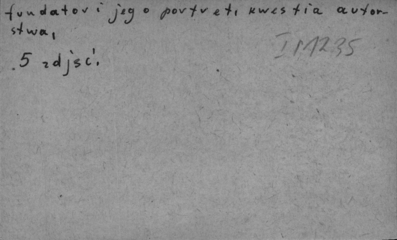 fundator i jego portret, kwestia autor-
stwa,
5 zdjęć.